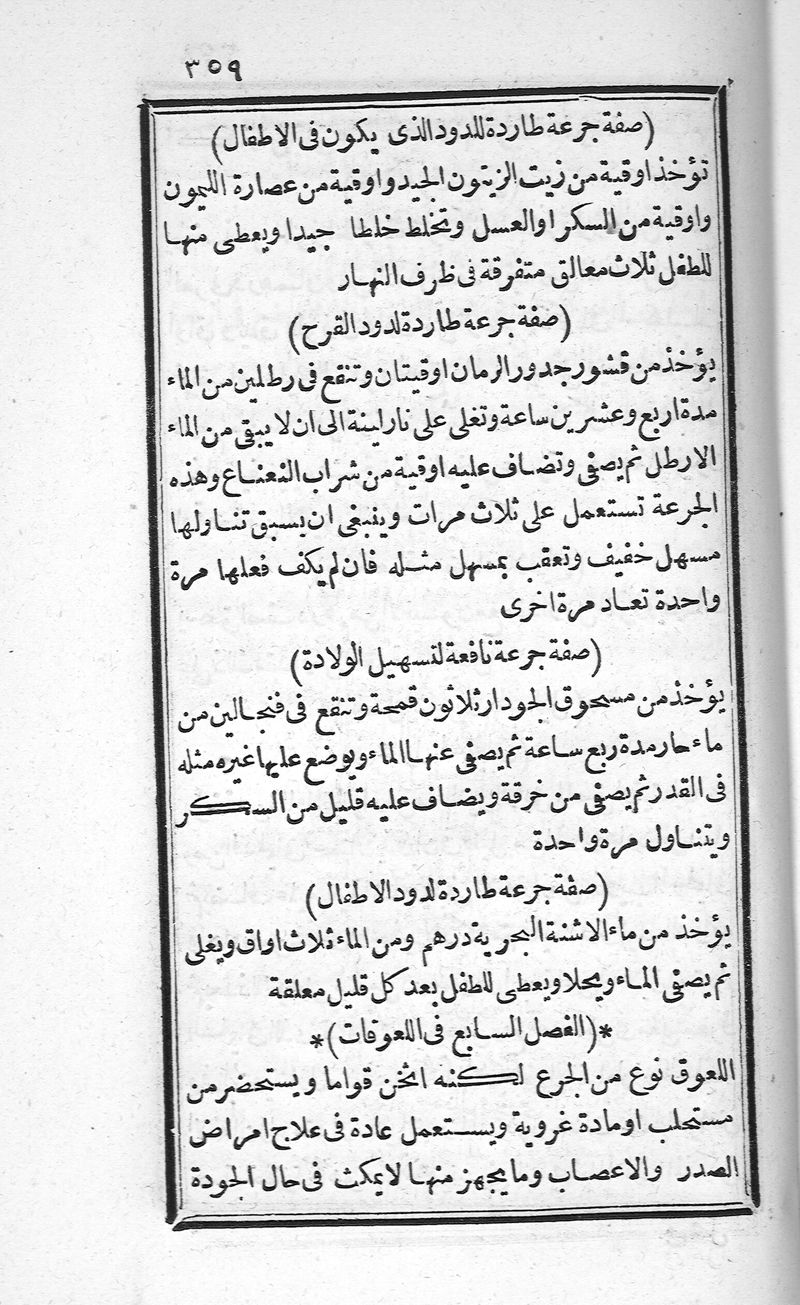 ٣٥٩
(صفة جرعة طاردة للدود الذى يكون فى الاطفال)
تؤخذ اوقية من زيت الزيتون الجيد واوقية من عصارة الليمون
واوقية من السكر او العسل وتخلط خلطا جيدا ويعطى منها
للطفل ثلاث معالق متفرقة فى ظرف النهار
(صفة جرعة طاردة لدود القرح)
يؤخذ من قشور جدور الرمان اوقيتان وتنقع فى رطلين من الماء
مدة اربع وعشرين ساعة وتغلى على نار لينة الى ان لا يبقى من الماء
الا رطل ثم يصفى وتضاف عليه اوقية من شراب النعناع وهذه
الجرعة تستعمل على ثلاث مرات وينبغى ان يسبق تناولها
مسهل خفيف وتعقب بمسهل مثله فان لم يكف فعلها مرة
واحدة تعاد مرة اخرى
(صفة جرعة نافعة لتسهيل الولادة)
يؤخذ من مسحوق الجودار ثلاثون قمحة وتنقع فى فنجالين من
ماء حار مدة ربع ساعة ثم يصفى عنها الماء ويوضع عليها غيره مثله
فى القدر ثم يصفى من خرقة ويضاف عليه قليل من السكر
ويتناول مرة واحدة
(صفة جرعة طاردة لدود الاطفال)
يؤخذ من ماء الاشنة البحرية درهم ومن الماء ثلاث اواق ويغلى
ثم يصفى الماء ويحلا ويعطى للطفل بعد كل قليل معلقة
*(الفصل السابع فى اللعوقات)*
اللعوق نوع من الجرع لكنه اثخن قواما ويستحضر من
مستحلب او مادة غروية ويستعمل عادة فى علاج امراض
الصدر والاعصاب وما يجهز منها لا يمكث فى حال الجودة